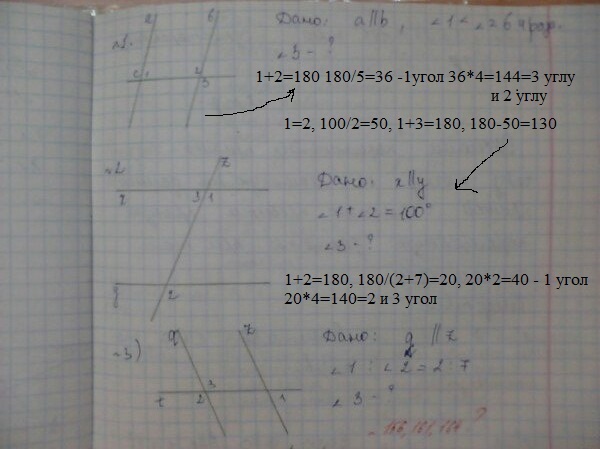 a b Дано: a||b, ∠1 < ∠2 в 4 раз.
№1.
∠3 - ?
c 1 2
3
1+2=180 180/5=36 -1угол 36*4=144=3 углу
и 2 углу
1=2, 100/2=50, 1+3=180, 180-50=130
№2 z
Дано: x||y
x 3 1
∠1+∠2=100°
∠3 - ?
1+2=180, 180/(2+7)=20, 20*2=40 - 1 угол
y 2
20*4=140=2 и 3 угол
№3) q z Дано: q || z
∠1 : ∠2 = 2:7
t 2 3 1
∠3 - ?